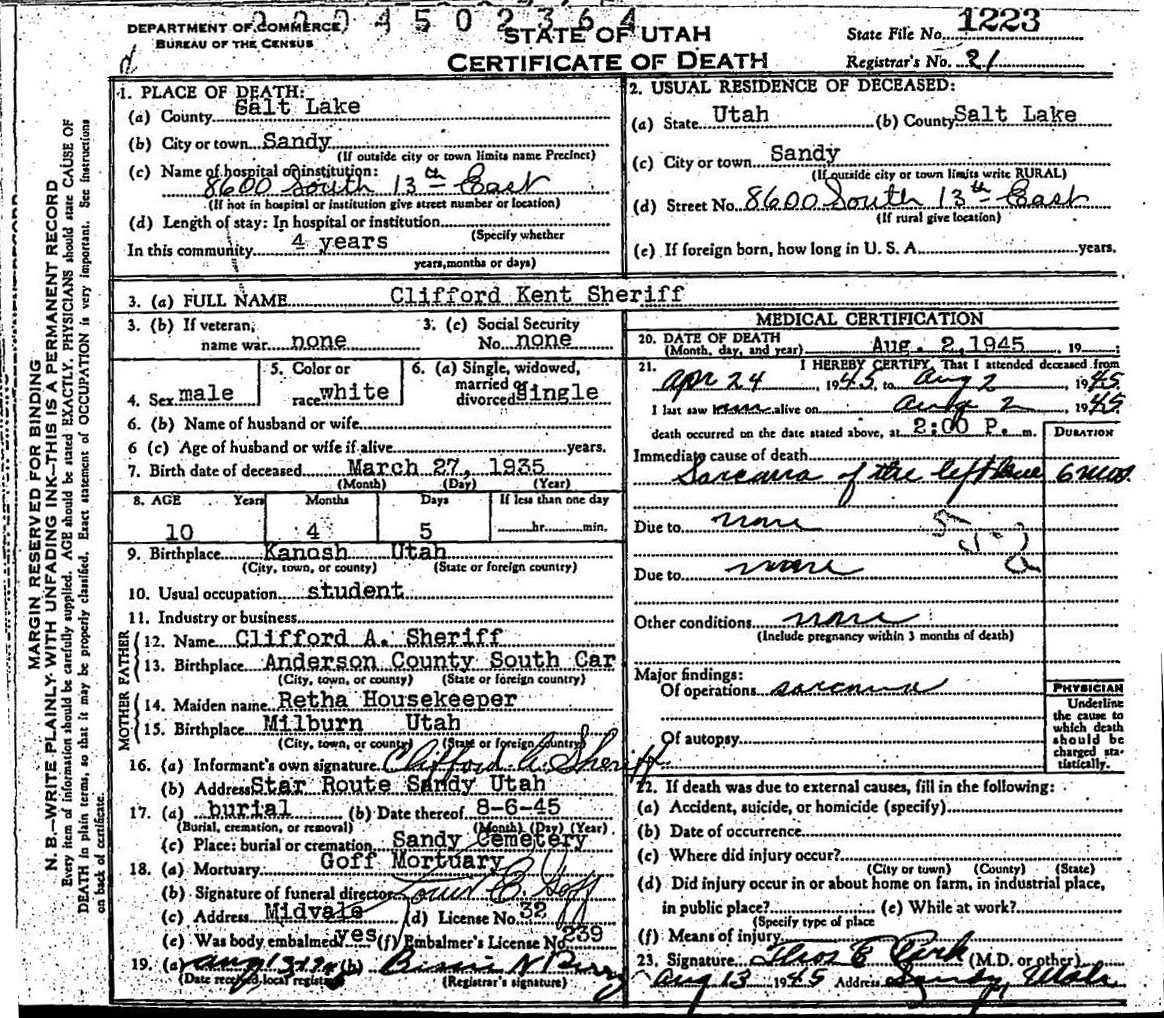 2 2 0 4 5 0 2 3 6 4
DEPARTMENT OF COMMERCE
BUREAU OF THE CENSUS
STATE OF UTAH
CERTIFICATE OF DEATH
State File No. 1223
Registrar's No. 21
MARGIN RESERVED FOR BINDING
N. B.—WRITE PLAINLY WITH UNFADING INK—THIS IS A PERMANENT RECORD
Every item of information should be carefully supplied. AGE should be stated EXACTLY. PHYSICIANS should state CAUSE OF
DEATH in plain terms, so that it may be properly classified. Exact statement of OCCUPATION is very important. See Instructions
on back of certificate.
1. PLACE OF DEATH:
(a) County Salt Lake
(b) City or town Sandy
(If outside city or town limits name Precinct)
(c) Name of hospital or institution:
8600 South 13th East
(If not in hospital or institution give street number or location)
(d) Length of stay: In hospital or institution
(Specify whether
In this community 4 years
years, months or days)
2. USUAL RESIDENCE OF DECEASED:
(a) State Utah (b) County Salt Lake
(c) City or town Sandy
(If outside city or town limits write RURAL)
(d) Street No. 8600 South 13th East
(If rural give location)
(e) If foreign born, how long in U. S. A. years.
3. (a) FULL NAME Clifford Kent Sheriff
3. (b) If veteran, name war none
3. (c) Social Security No. none
4. Sex male
5. Color or race white
6. (a) Single, widowed, married or divorced Single
6. (b) Name of husband or wife
6 (c) Age of husband or wife if alive years.
7. Birth date of deceased March 27, 1935
(Month) (Day) (Year)
8. AGE Years Months Days If less than one day
10 4 5 hr. min.
9. Birthplace Kanosh Utah
(City, town, or county) (State or foreign country)
10. Usual occupation student
11. Industry or business
FATHER
12. Name Clifford A. Sheriff
13. Birthplace Anderson County South Car
(City, town, or county) (State or foreign country)
MOTHER
14. Maiden name Retha Housekeeper
15. Birthplace Milburn Utah
(City, town, or county) (State or foreign country)
16. (a) Informant's own signature Clifford A. Sheriff
(b) Address Star Route Sandy Utah
17. (a) burial (b) Date thereof 8-6-45
(Burial, cremation, or removal) (Month) (Day) (Year)
(c) Place: burial or cremation Sandy Cemetery
18. (a) Mortuary Goff Mortuary
(b) Signature of funeral director Goff
(c) Address Midvale (d) License No. 32
(e) Was body embalmed? yes (f) Embalmer's License No. 239
19. (a) Aug 13 (b) N Perry
(Date received local registrar) (Registrar's signature)
MEDICAL CERTIFICATION
20. DATE OF DEATH
(Month, day, and year) Aug. 2, 1945 19
21. I HEREBY CERTIFY, That I attended deceased from
Apr 24, 1945 to Aug 2, 1945
I last saw him alive on Aug 2 1945
death occurred on the date stated above, at 2:00 P. m.
DURATION
Immediate cause of death
Sarcoma of the left 6 mos.
Due to none
Due to none
Other conditions none
(Include pregnancy within 3 months of death)
Major findings:
Of operations sarcoma
Of autopsy
PHYSICIAN
Underline
the cause to
which death
should be
charged sta-
tistically.
22. If death was due to external causes, fill in the following:
(a) Accident, suicide, or homicide (specify)
(b) Date of occurrence
(c) Where did injury occur?
(City or town) (County) (State)
(d) Did injury occur in or about home on farm, in industrial place,
in public place? (e) While at work?
(Specify type of place
(f) Means of injury
23. Signature E Park (M.D. or other)
Aug 13 1945 Address Sandy, Utah